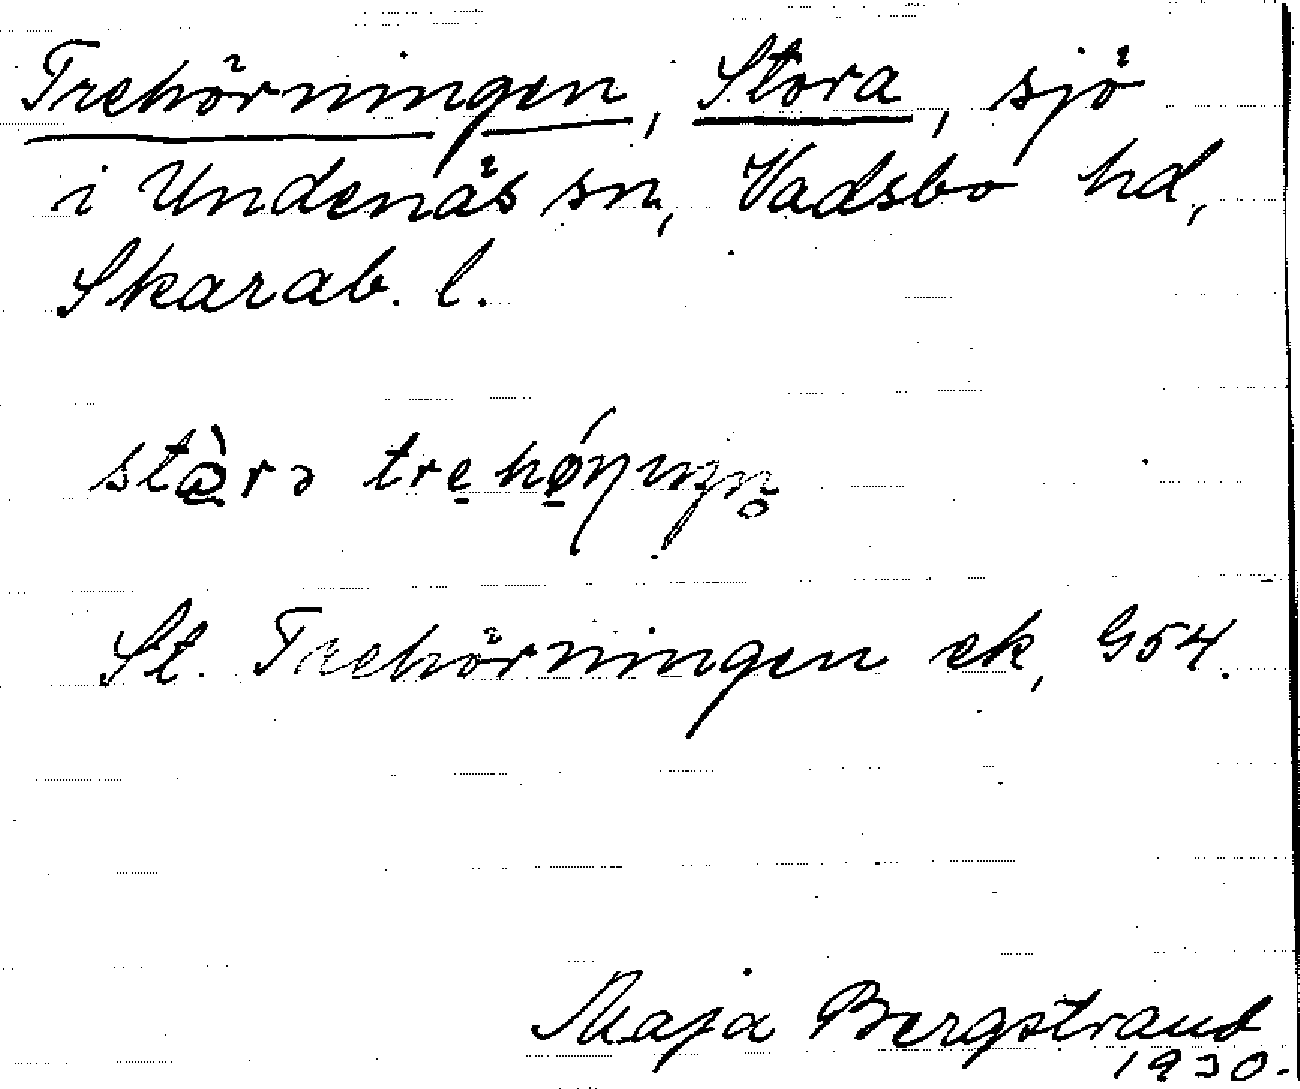 Trehörningen, Stora, sjö
i Undenäs sn, Vadsbo hd,
Skarab. l.
St. Trehörningen ek, G54.
Maja Bergstrand
1930.